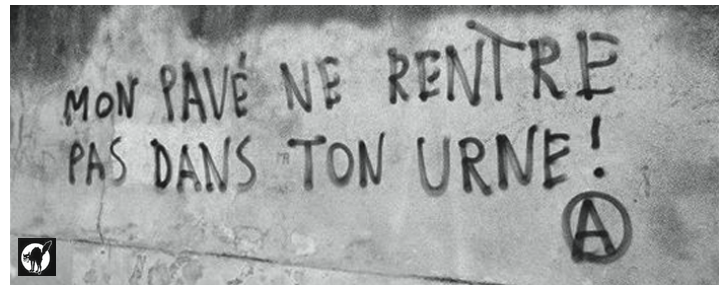 MON PAVÉ NE RENTRE
PAS DANS TON URNE!
A